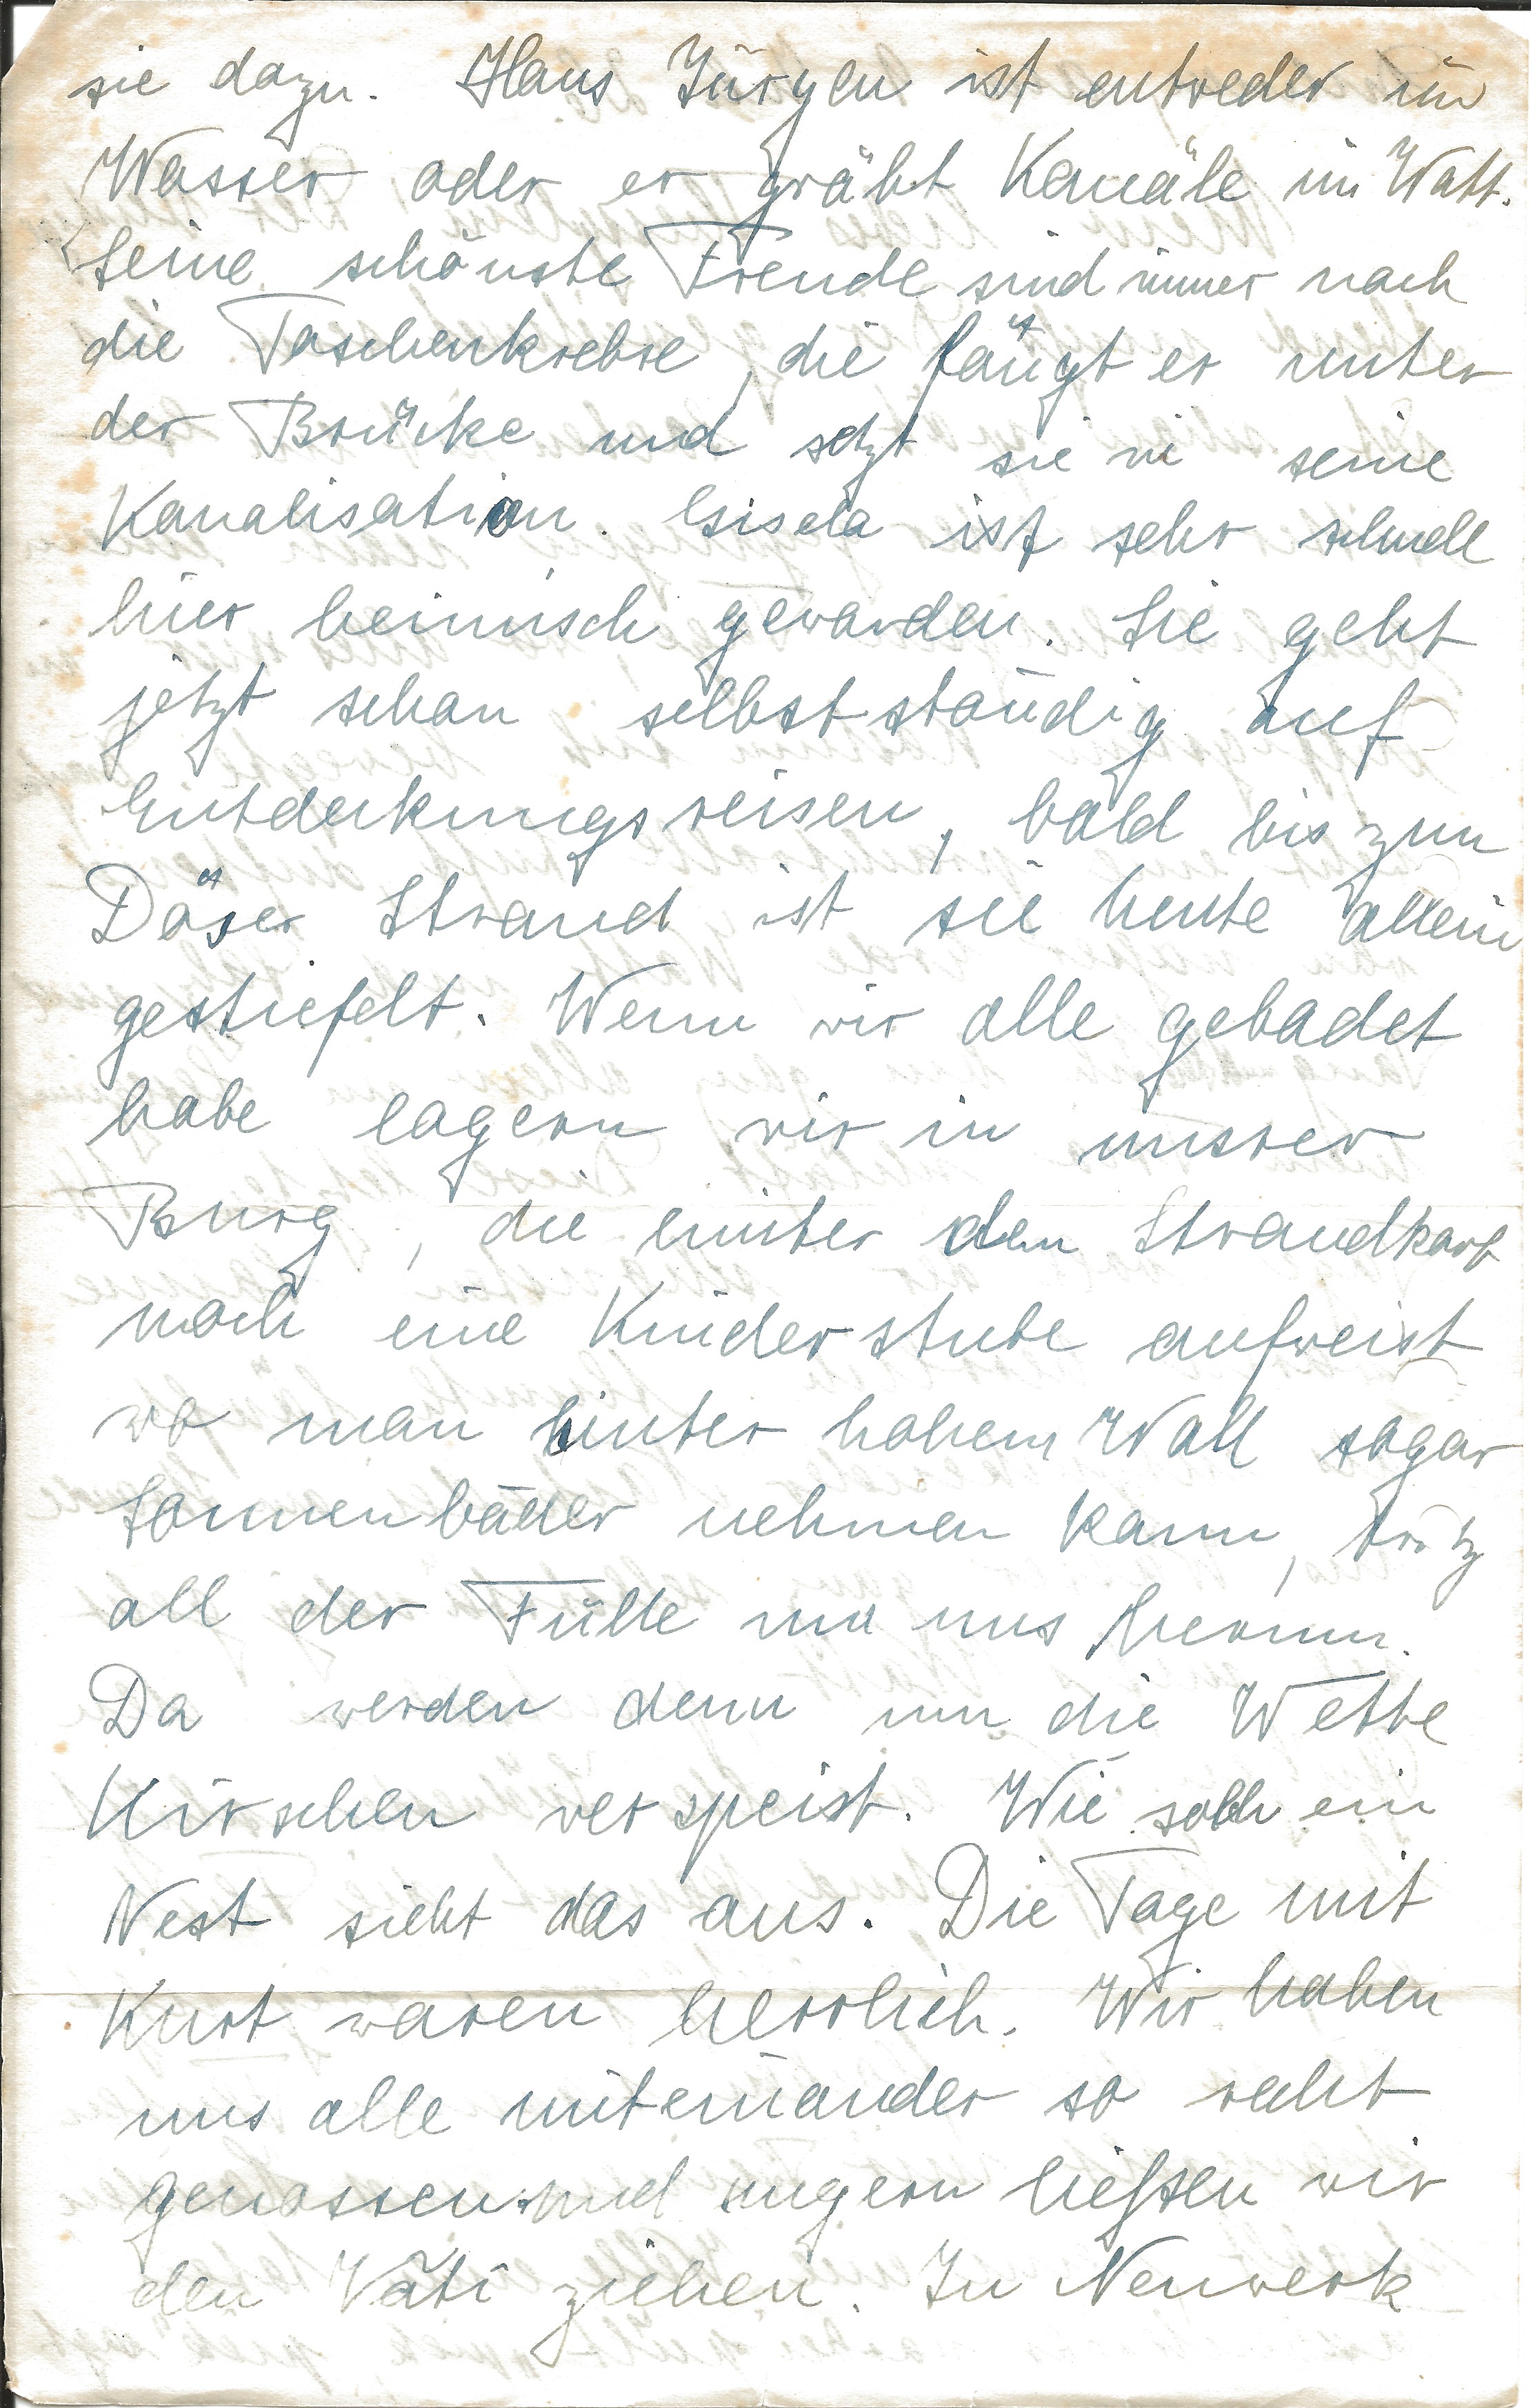 sie dazu. Hans Jürgen ist entweder im
Wasser oder er gräbt Kanäle im Watt.
Seine schönste Freude sind immer noch
die Taschenkrebse, die fängt er unter
der Brücke und setzt sie in seine
Kanalisation. Gisela ist sehr schnell
hier heimisch geworden. Sie geht
jetzt schon selbstständig auf
Entdeckungsreisen, bald bis zum
Döser Strand ist sie heute allein
gestiefelt. Wenn wir alle gebadet
habe lagern wir in unsrer
Burg, die hinter dem Strandkorb
noch eine Kinderstube aufweist
wo man hinter hohem Wall sogar
Sonnenbäder nehmen kann, trotz
all der Fülle um uns herum.
Da werden denn um die Wette
Kirschen verspeist. Wie solch ein
Nest sieht das aus. Die Tage mit
Kurt waren herrlich. Wir haben
uns alle miteinander so recht
genossen und ungern ließen wir
den Vati ziehen. In Neuwerk